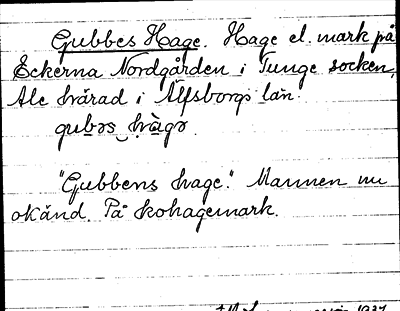 Gubbes Hage. Hage el. mark på
Eckerna Nordgården i Tunge socken,
Ale härad i Älfsborgs län.
gub̲əs hàgə
"Gubbens hage". Mannen nu
okänd. På kohagemark.
1937